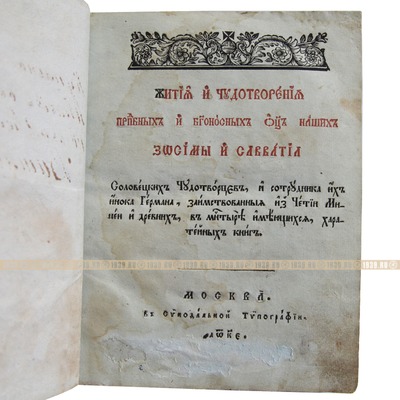 Житїѧ̀ и҆ чꙋдотворе́нїѧ
прпⷣбныхъ и҆ бг҃оно́сныхъ ѻ҆ц҃ъ на́шихъ
Зѡсі́мы и҆ Савва́тїа
Солове́цкихъ Чꙋдотво́рцєвъ, и҆ сотрꙋ́дника и҆́хъ
и҆́нока Ге́рмана, заи҆́мствованныѧ и҆з̾ Че́тїи Ми-
не́и и҆ дре́внихъ, въ мⷭ҇ты́рѣ и҆мѣ́ющихсѧ, хара-
те́йныхъ кни́гъ.
МОСКВА̀.
Въ Сѷнода́льной Тѷпогра́фїи